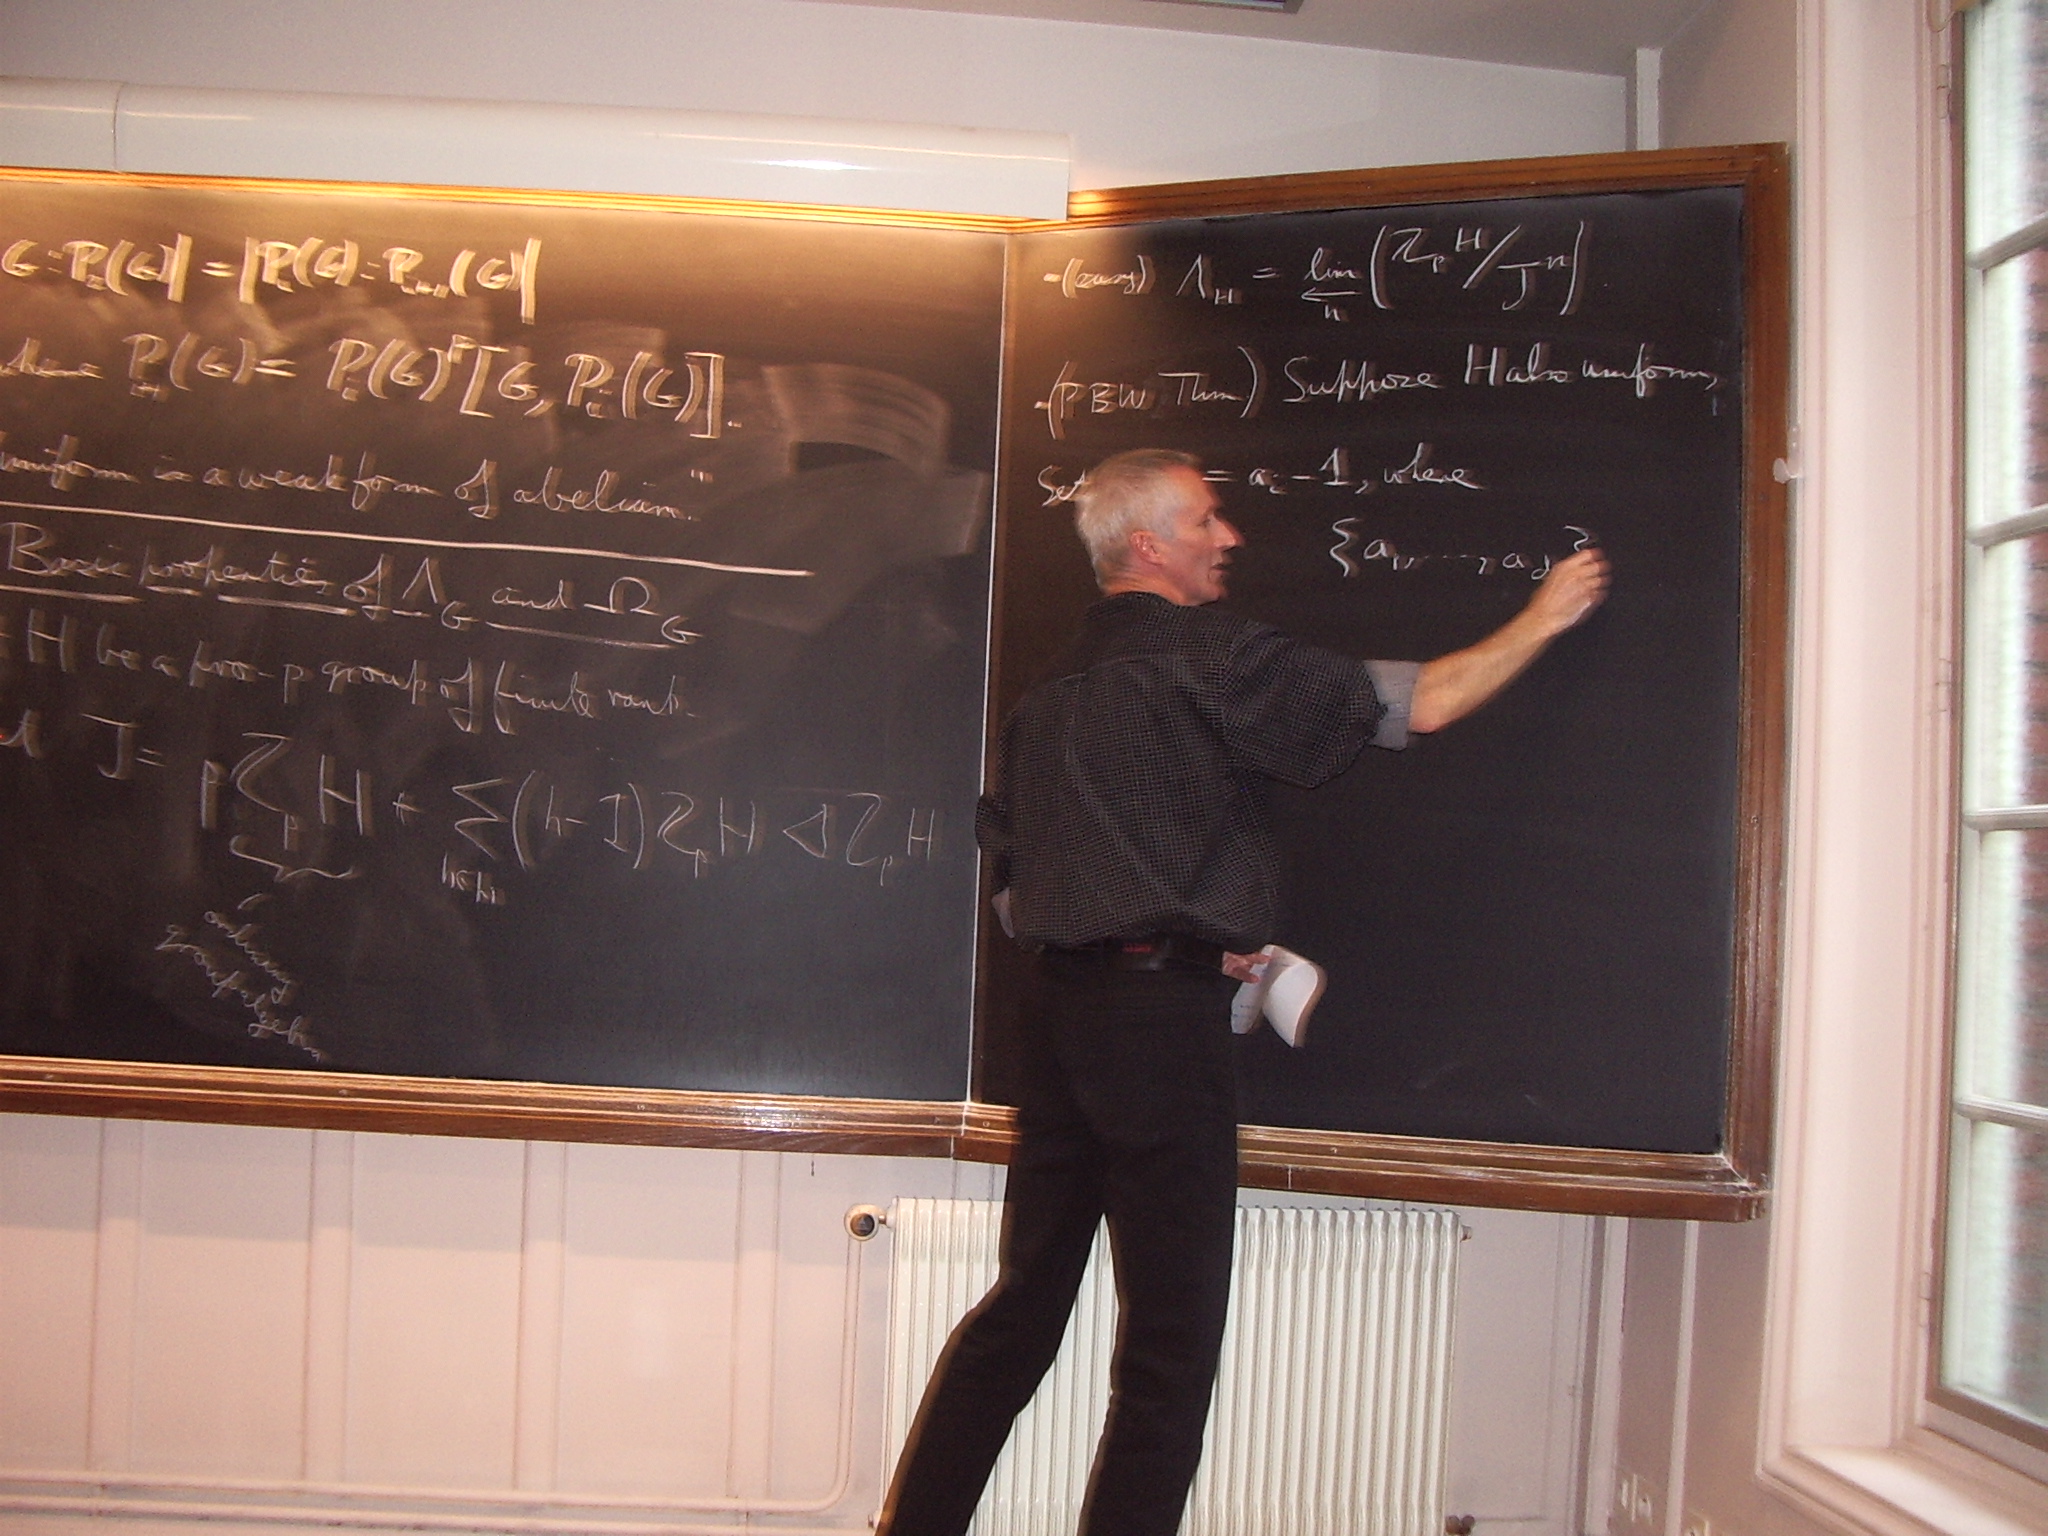 G : Pᵢ(G)| = |Pᵢ(G) : Pᵢ₊₁(G)|
where Pᵢ₊₁(G) = Pᵢ(G)ᵖ[G, Pᵢ(G)].
uniform is a weak form of abelian."
Basic properties of Λ_G and Ω_G
H be a pro-p group of finite rank.
J = pℤₚH + ∑(h-1)ℤₚH ◁ ℤₚH
h∈H
ordinary
group algebra
-(easy) Λ_H = lim (ℤₚH/Jⁿ)
← n
-(PBW Thm) Suppose H also uniform,
Set = aᵢ - 1, where
{a₁, ..., a_d}